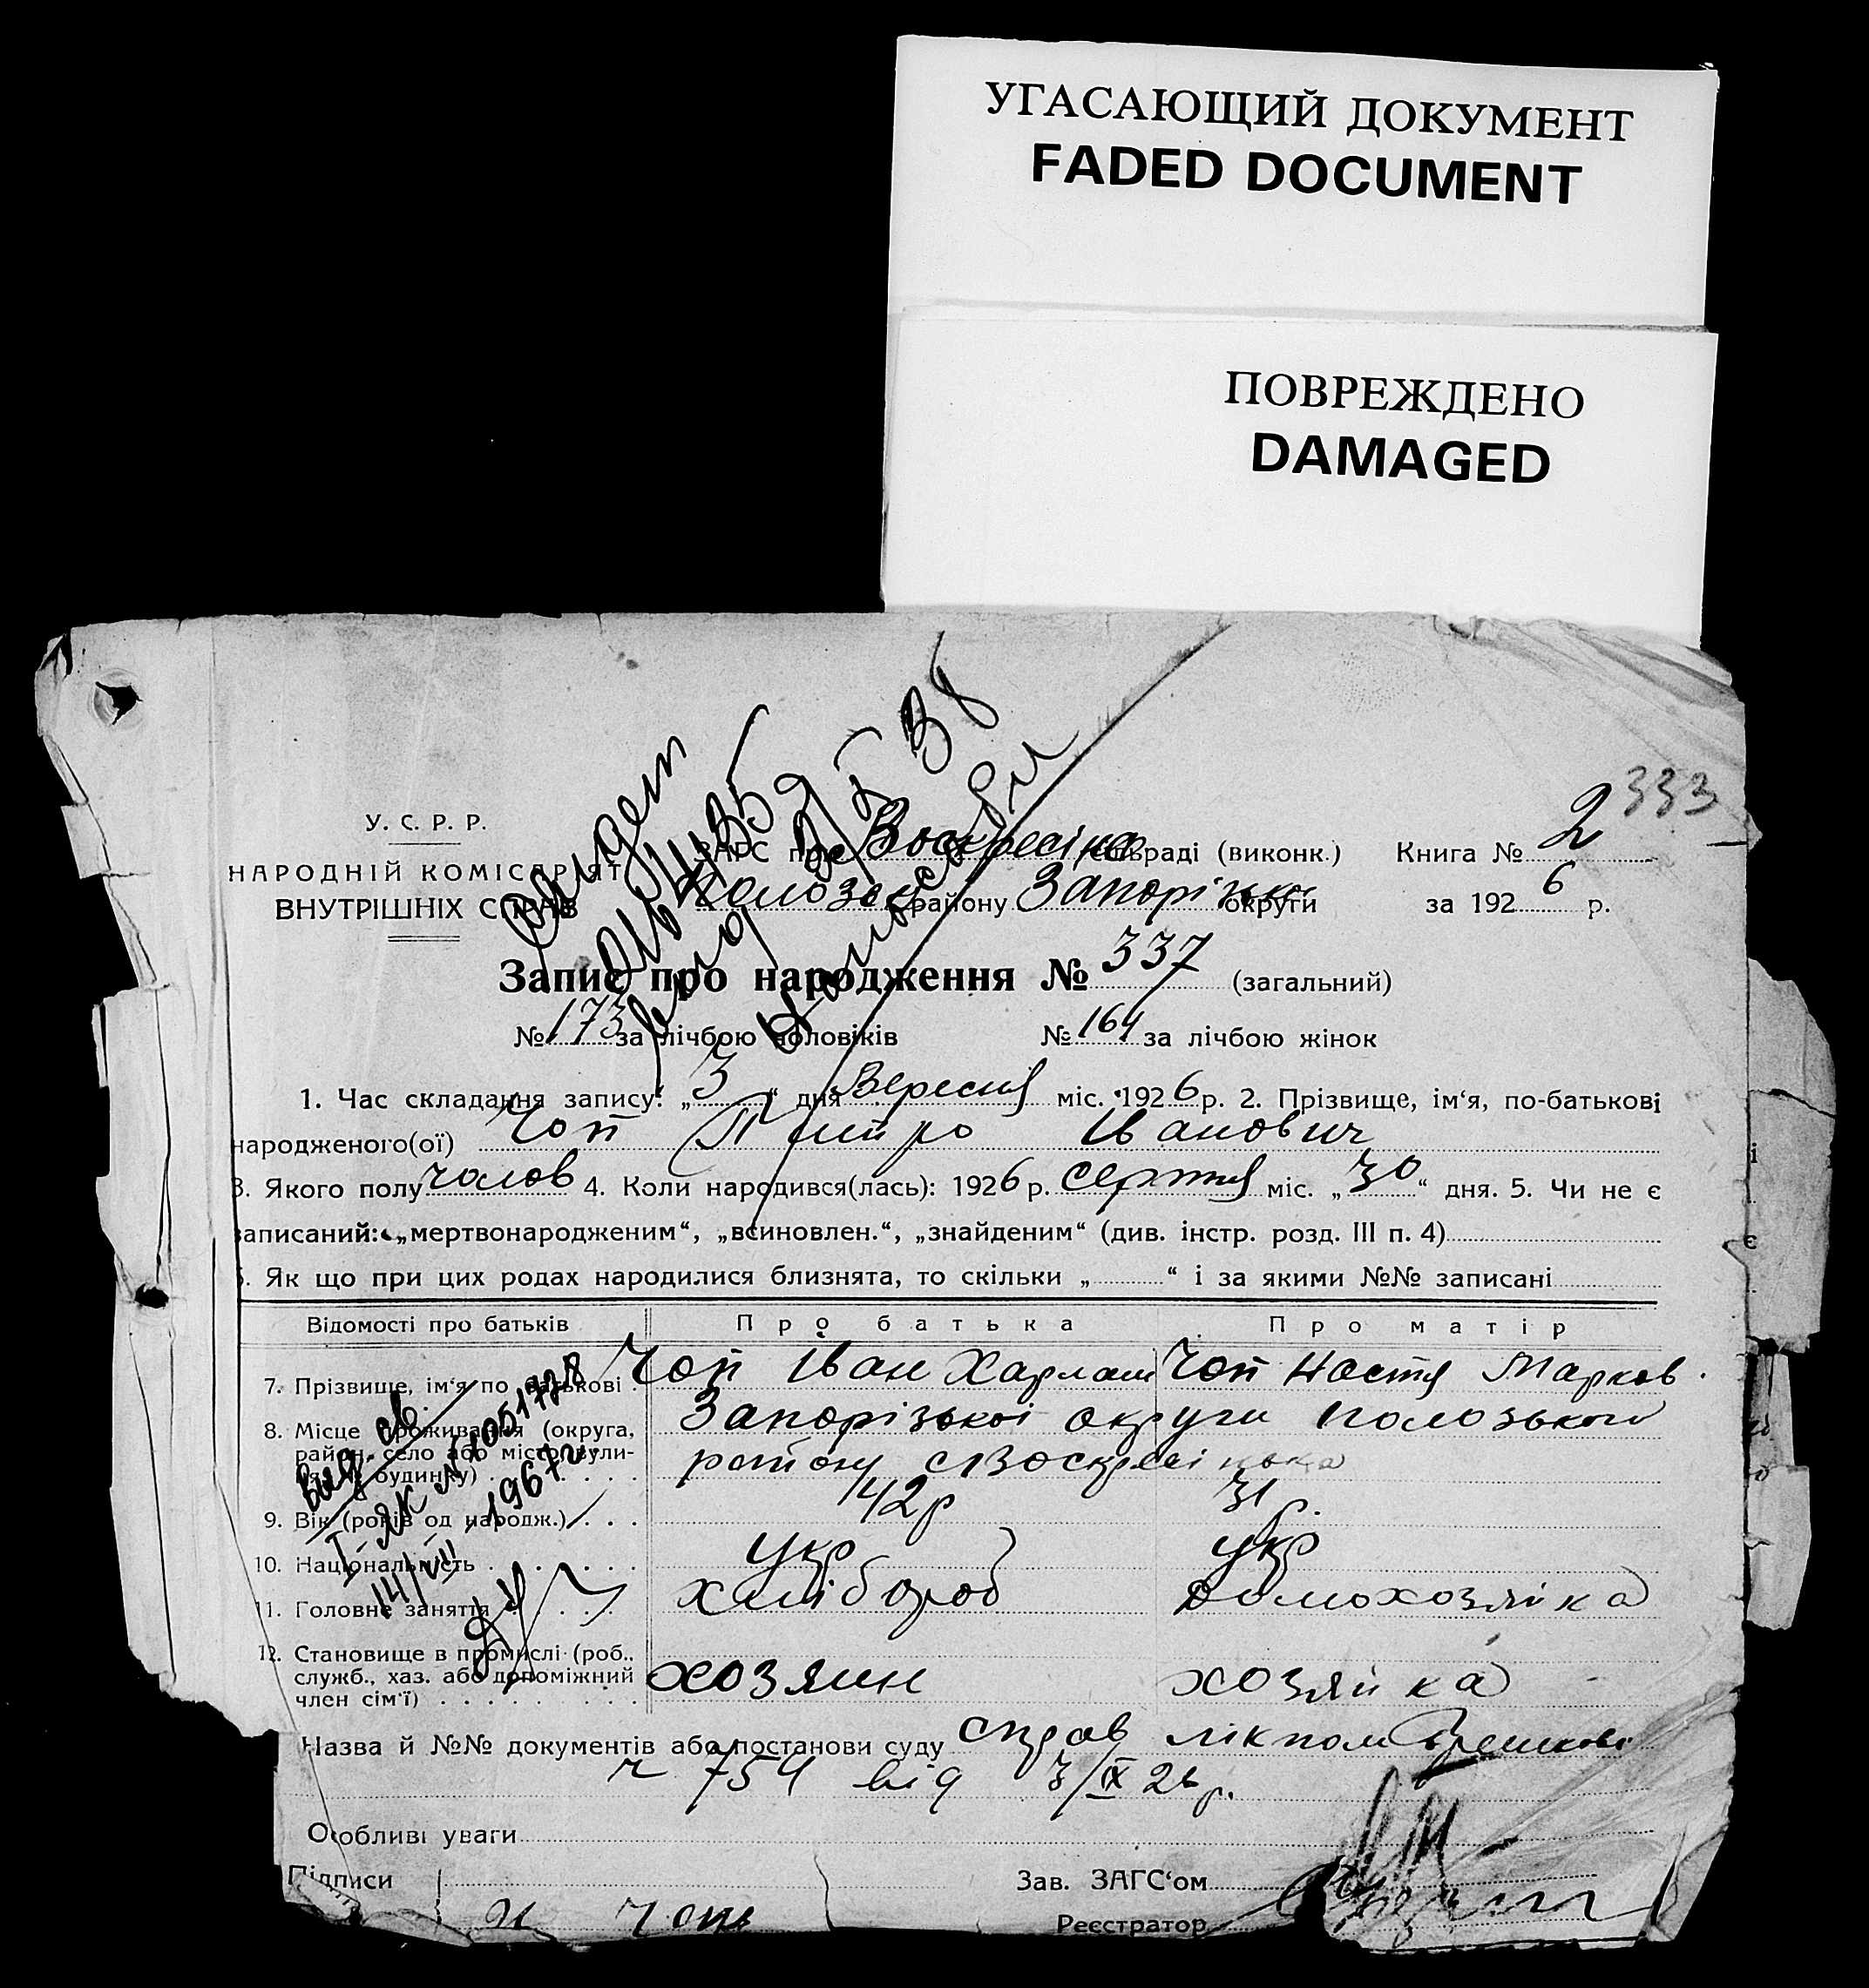 УГАСАЮЩИЙ ДОКУМЕНТ
FADED DOCUMENT
ПОВРЕЖДЕНО
DAMAGED
333
У. С. Р. Р.
НАРОДНІЙ КОМІСАРІЯТ
ВНУТРІШНІХ СПРАВ
ЗАГС при Воскресінс сільраді (виконк.) Книга № 2
Пологов району Запорізько округи за 192 6 р.
Запис про народження № 337 (загальний)
№ 173 за лічбою чоловіків № 164 за лічбою жінок
1. Час складання запису: „3“ дня Вересня міс. 1926 р. 2. Прізвище, ім‘я, по-батькові
народженого(ої) Чоп Питро Іванович
3. Якого полу чолов 4. Коли народився(лась): 1926 р. серпня міс. „30“ дня. 5. Чи не є
записаний: „мертвонародженим“, „всиновлен.“, „знайденим“ (див. інстр. розд. III п. 4)
6. Як що при цих родах народилися близнята, то скільки „ “ і за якими №№ записані
Відомості про батьків Про батька Про матір
7. Прізвище, ім‘я по батькові Чоп Іван Харлам Чоп Настя Марков.
8. Місце проживання (округа, район, село або місто, вулиця, № будинку) Запорізької округи Полозького
району с Воскресінька
9. Вік (років од народж.) 42р 31 р.
10. Національність укр укр
11. Головне заняття хлібороб домохозяйка
12. Становище в промислі (роб., служб., хаз. або допоміжний член сім‘ї) хозяин хозяйка
Вид. св.
I-ЯК № 1051728
14/VII-1967 г.
Назва й №№ документів або постанови суду справ лікпом
ч 754 від 3/IX 26 р.
Особливі уваги
Підписи Зав. ЗАГС‘ом
Чопъ Реєстратор